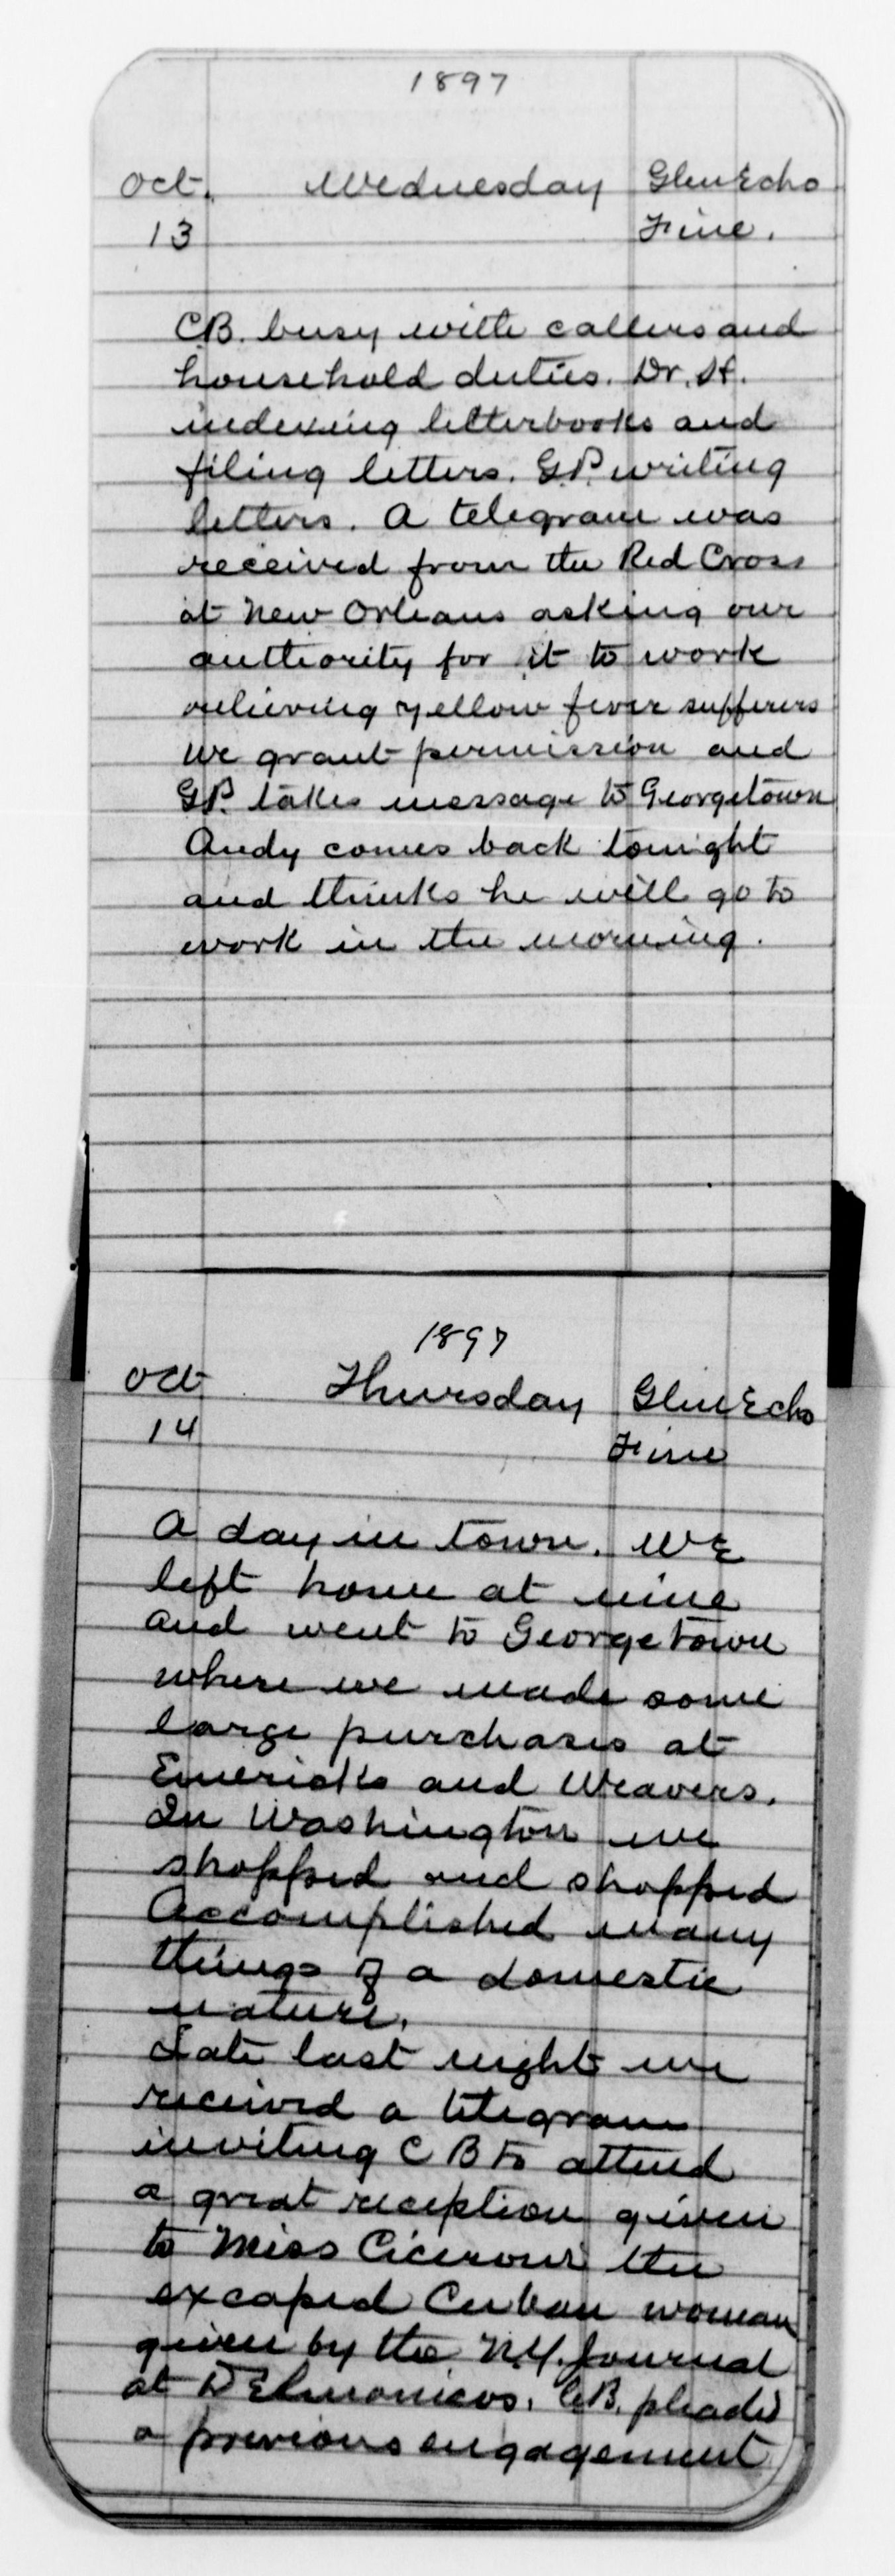 1897
Oct. Wednesday Glen Echo
13 Fine.
C.B. busy with callers and
household duties. Dr. H.
indexing letterbooks and
filing letters. G.P. writing
letters. A telegram was
received from the Red Cross
at New Orleans asking our
authority for it to work
relieving yellow fever sufferers
We grant permission and
G.P. takes message to Georgetown
Andy comes back tonight
and thinks he will go to
work in the morning.
1897
Oct Thursday Glen Echo
14 Fine
A day in town. We
left home at nine
and went to Georgetown
where we made some
large purchases at
Emericks and Weavers.
In Washington we
shopped and shopped
Accomplished many
things of a domestic
nature.
Late last night we
received a telegram
inviting C B to attend
a great reception given
to Miss Cicerons the
excaped Cuban woman
given by the N.Y. Journal
at Delmonicos. C.B. pleads
a previous engagement